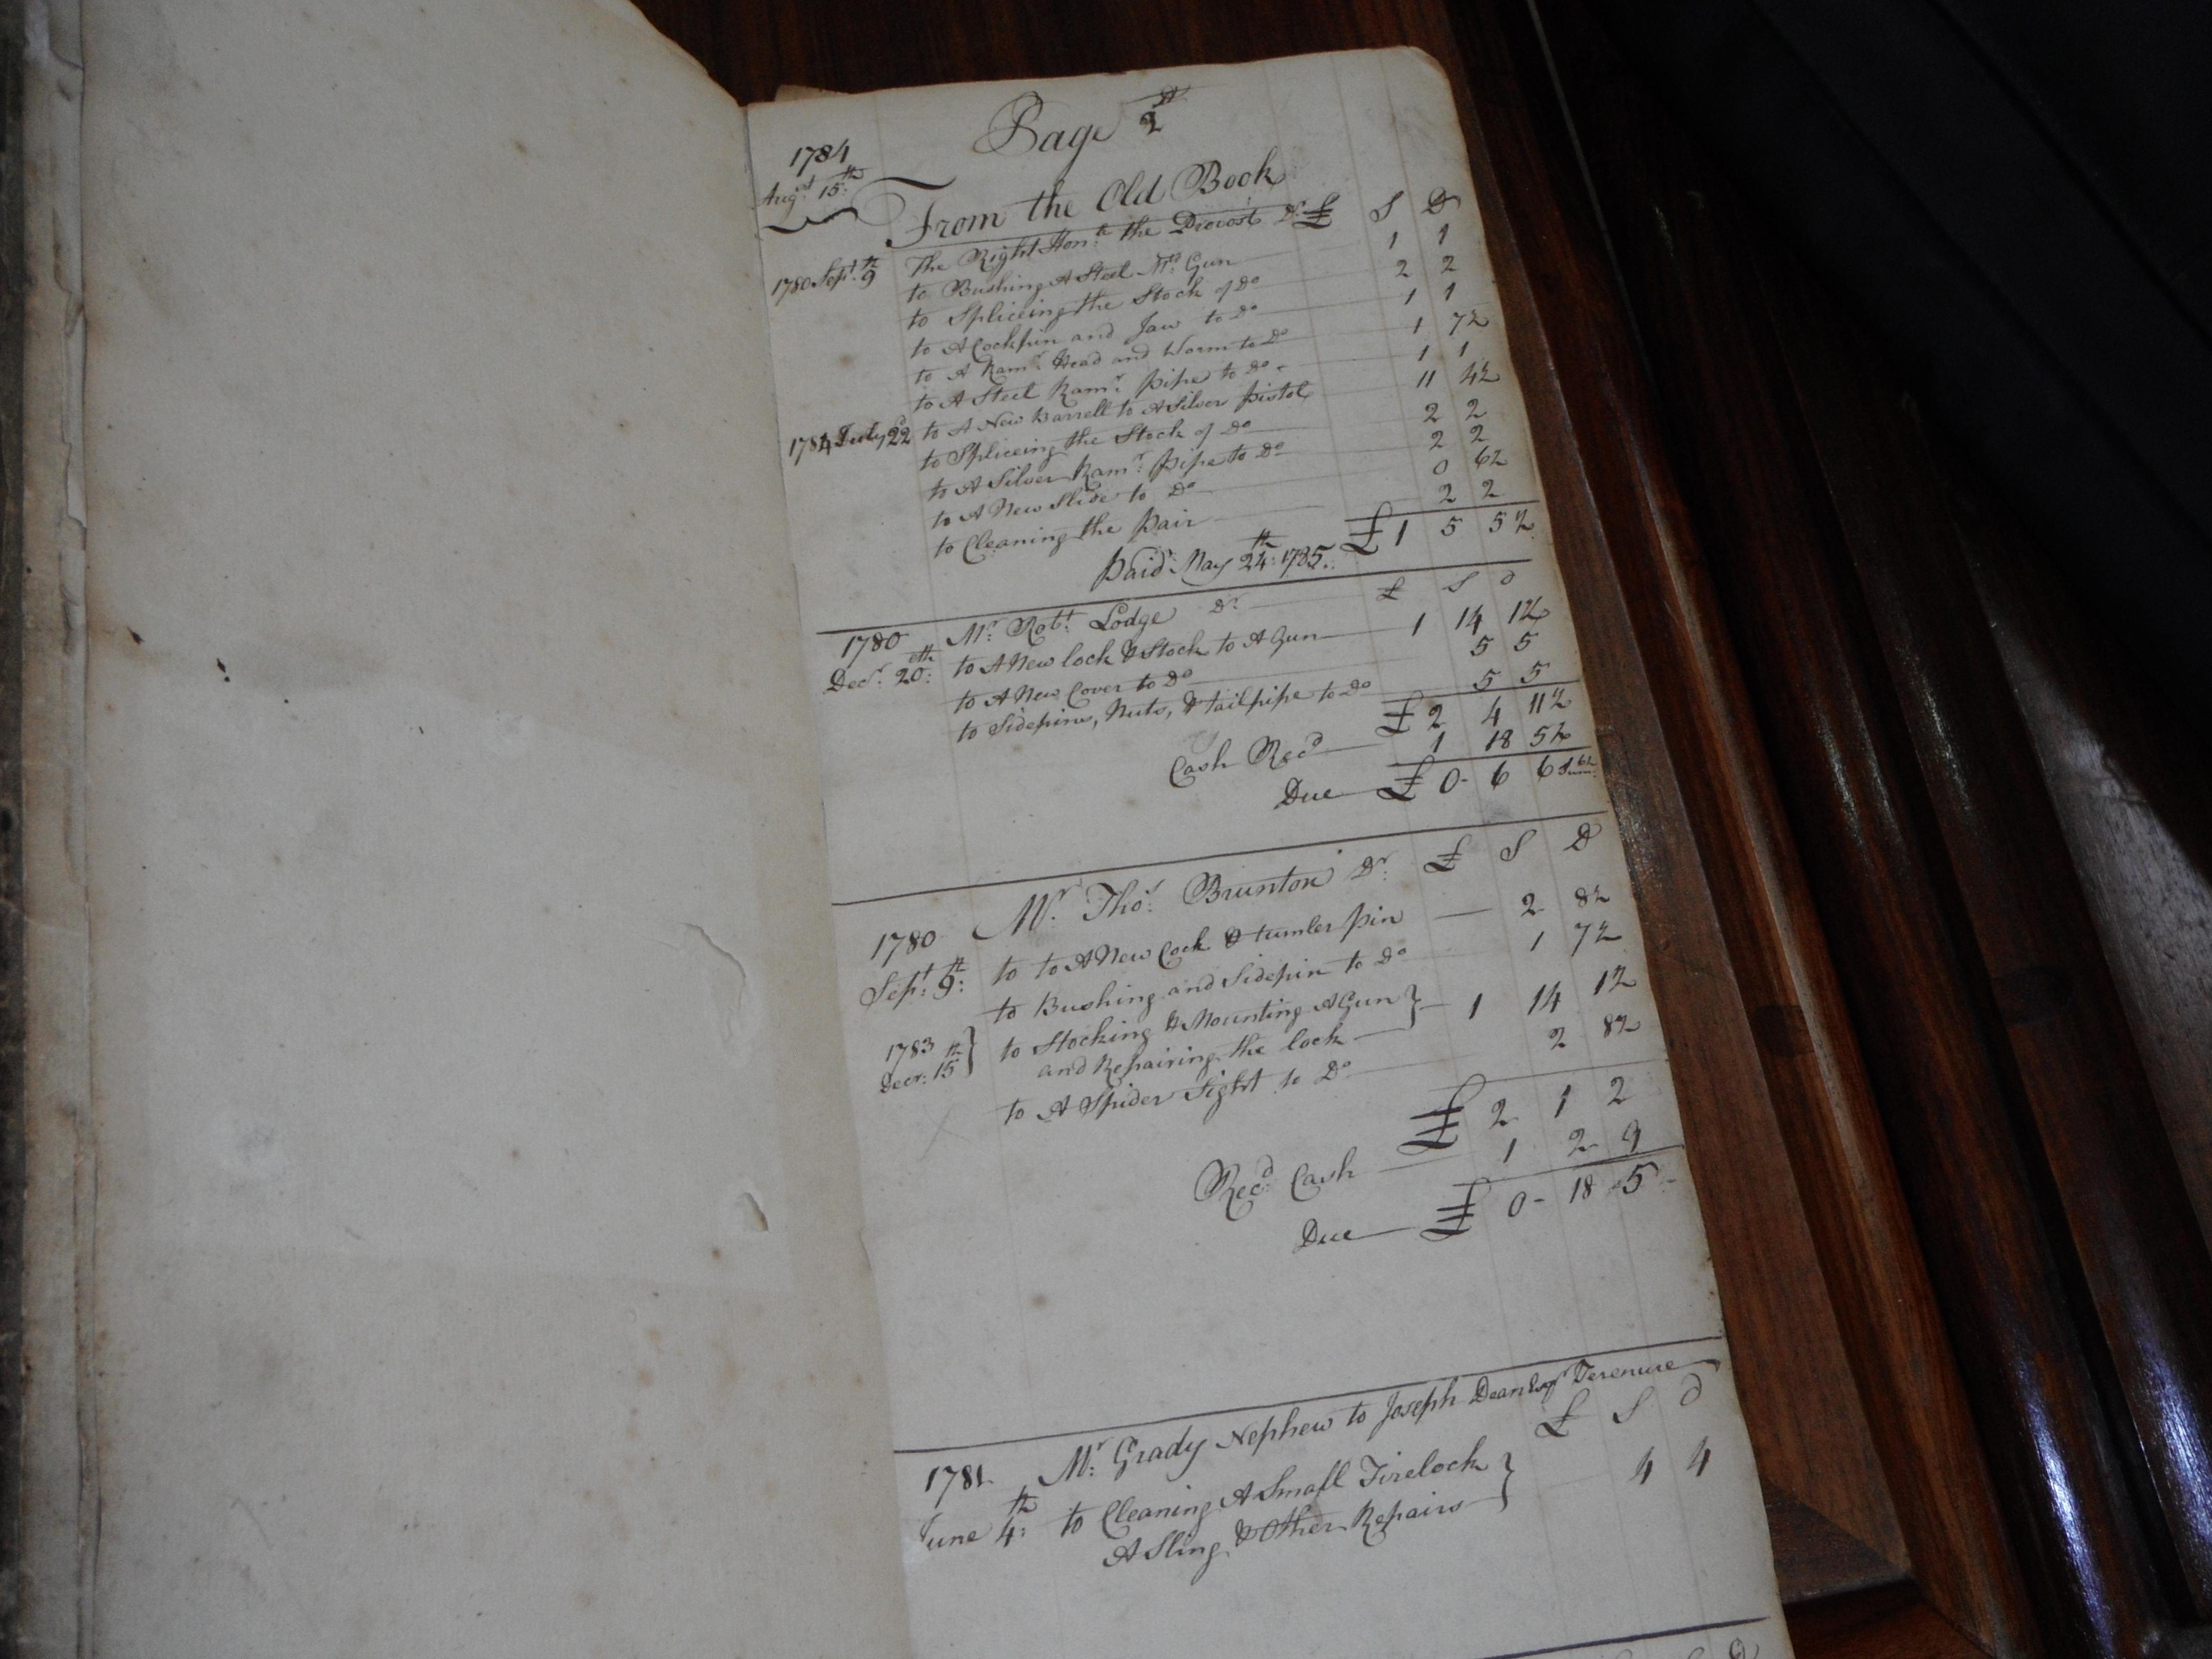 Page 2d
1784
Augst 15th
From the Old Book
The Right Honle the Provost Dr £ S D
1780 Sept 9th to Bushing A Steel Md Gun 1 1
to Spliceing the Stock of Do 2 2
to A Cockpin and Jaw to Do 1 1
to A Ramr Head and Worm to Do 1 7½
to A Steel Ramr pipe to Do 1 1
1784 July 22d to A New Barrell to A Silver pistol 11 4½
to Spliceing the Stock of Do 2 2
to A Silver Ramr pipe to Do 2 2
to A New Slide to Do 0 6½
to Cleaning the pair 2 2
£ 1 5 5½
paid May 24th: 1785
1780 Mr: Robt: Lodge Dr £ S d
Decr: 20:eth to A New lock & Stock to A Gun 1 14 1½
to A New Cover to Do 5 5
to Sidepins, Nuts, & tailpipe to Do 5 5
£ 2 4 11½
Cash Recd 1 18 5½
Due £ 0 - 6 6
1780 Mr. Thos: Brunton Dr: £ S D
Sept: 9th: to to A New Cock & tumler pin 2 8½
to Bushing and Sidepin to Do 1 7½
1783 Decr: 15th } to Stocking & Mounting A Gun } 1 14 1½
and Repairing the lock
to A Spider Sight to Do 2 8½
£ 2 1 2
Recd: Cash 1 2 9
Due £ 0 - 18 5
1781 Mr: Grady Nephew to Joseph Dean Esqr Terenure
£ S d
June 4th: to Cleaning A Small Firelock } 4 4
A Sling & Other Repairs